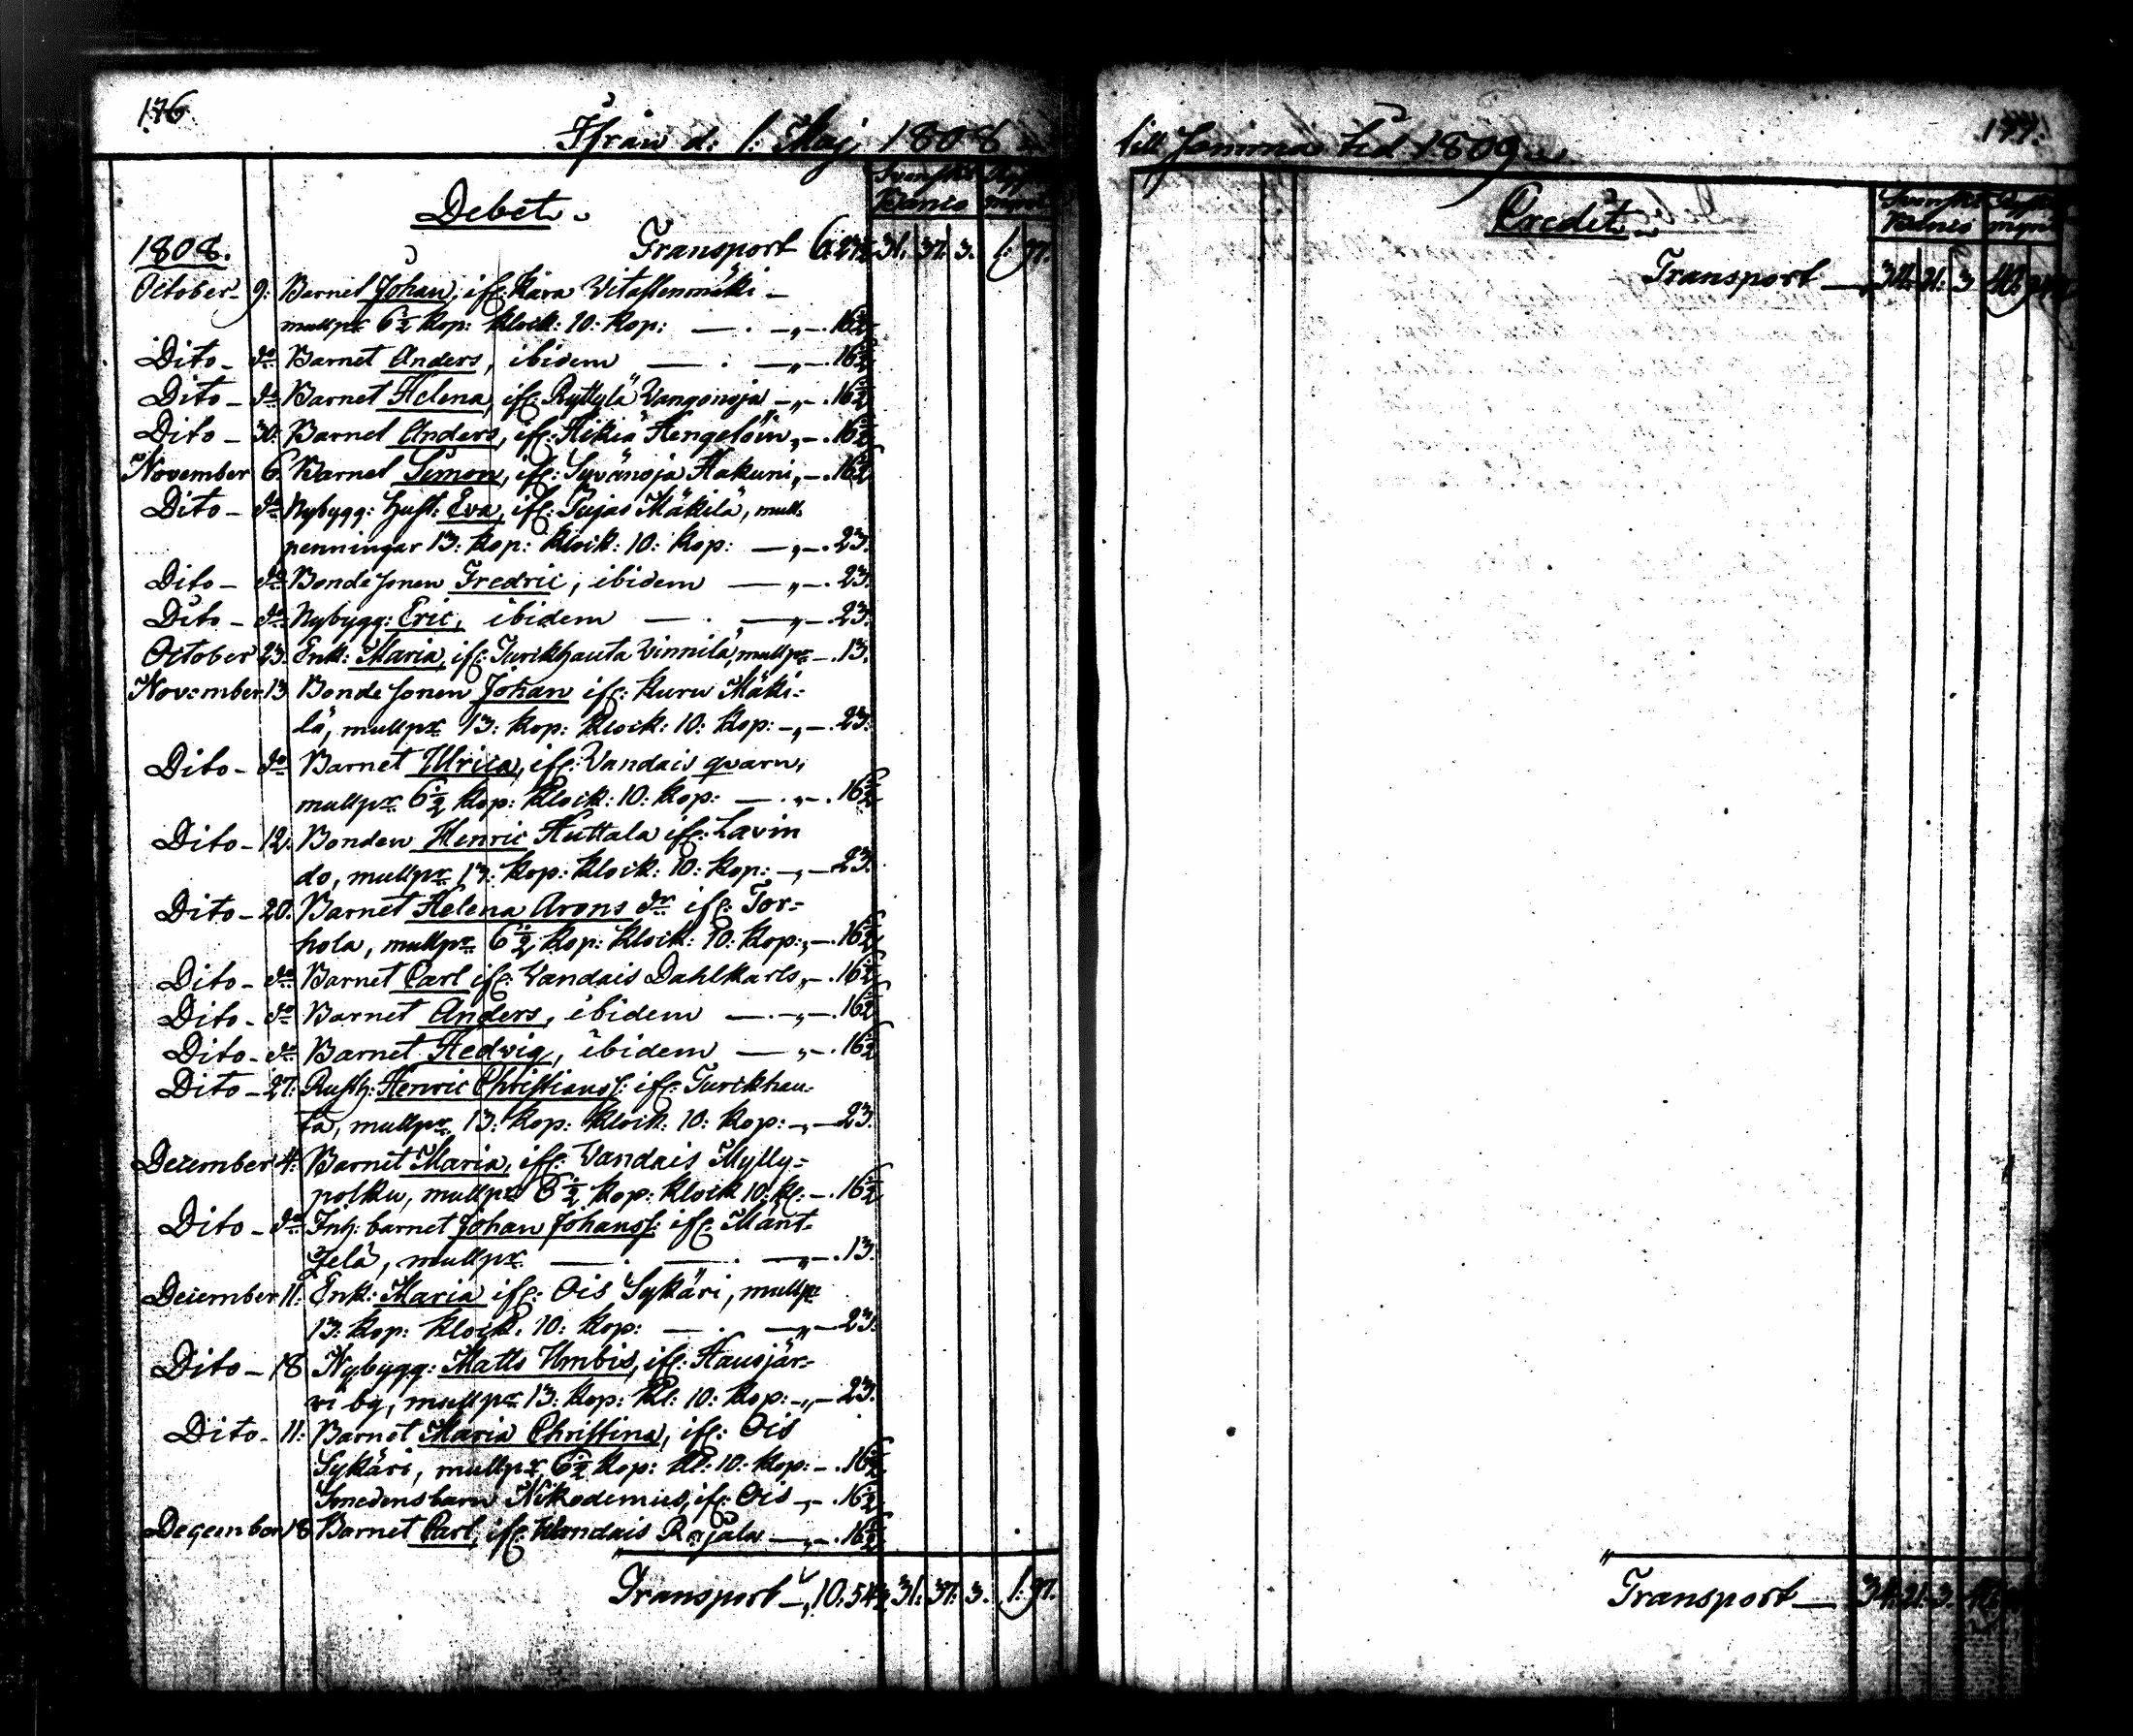 176
Ifrån d. 1. Maj 1808
Debet.
Svenskt Banco
1808. Transport 6.27½ 31. 37. 3. 1. 97.
October 9. Barnet Johan, ifr: Kara
mullpr 6½ kop: klock: 10: kop: — 16½
Dito do Barnet Anders, ibidem — 16½
Dito do Barnet Helena, ifr: Ryttylä Vangonoja — 16½
Dito 30. Barnet Anders, ifr: Hikiä — 16½
November 6. Barnet Simon, ifr: Syvänoja Hakuni — 16½
Dito do Nybygg: Hust: Eva, ifr: Pujas Mäkilä, mull
penningar 13: kop: klock: 10: kop: — 23.
Dito do Bonde sonen Fredric, ibidem — 23.
Dito do Nybygg: Eric, ibidem — 23.
October 23. Enk: Maria, ifr: Turikhauta Vinnilä, mullpr — 13.
November 13 Bonde sonen Johan ifr: Kuru Mäki=
lä, mullpr 13: kop: klock: 10: kop: — 23.
Dito do Barnet Ulrica, ifr: Vandais qvarn,
mullpr 6½ kop: klock: 10: kop: — 16½
Dito 12. Bonden Henric Huttala ifr: Lavin
do, mullpr 13: kop: klock: 10: kop: — 23.
Dito 20. Barnet Helena Arons dr ifr: Tor=
hola, mullpr 6½ kop: klock: 10: kop: — 16½
Dito do Barnet Carl ifr: Vandais Dahlkarls — 16½
Dito do Barnet Anders, ibidem — 16½
Dito do Barnet Hedvig, ibidem — 16½
Dito 27. Rusth: Henric Christianss: ifr: Turikhau=
ta, mullpr 13: kop: klock: 10: kop: — 23.
December 4. Barnet Maria, ifr: Vandais Mylly=
polku, mullpr 6½ kop: klock 10: k: — 16½
Dito do Inh: barnet Johan Johanss: ifr: Mänt=
zelä, mullpr — 13.
December 11. Enk: Maria ifr: Ois Sykäri, mullpr
13: kop: klock: 10: kop: — 23.
Dito 18 Nybygg: Matts Umbis, ifr: Hausjär=
vi by, mullpr 13: kop: kl: 10: kop: — 23.
Dito 11: Barnet Maria Christina, ifr: Ois
Sykäri, mullpr 6½ kop: kl: 10: kop: — 16½
Smedens barn Nikodemus, ifr: Ois — 16½
December 18 Barnet Carl, ifr: Vandais Rajala — 16½
Transport — 10.54½ 31. 37. 3. 1. 97.
177.
till samma tid 1809
Credit
Svenskt Banco
Transport — 34. 21. 3
Transport — 34. 21. 3.